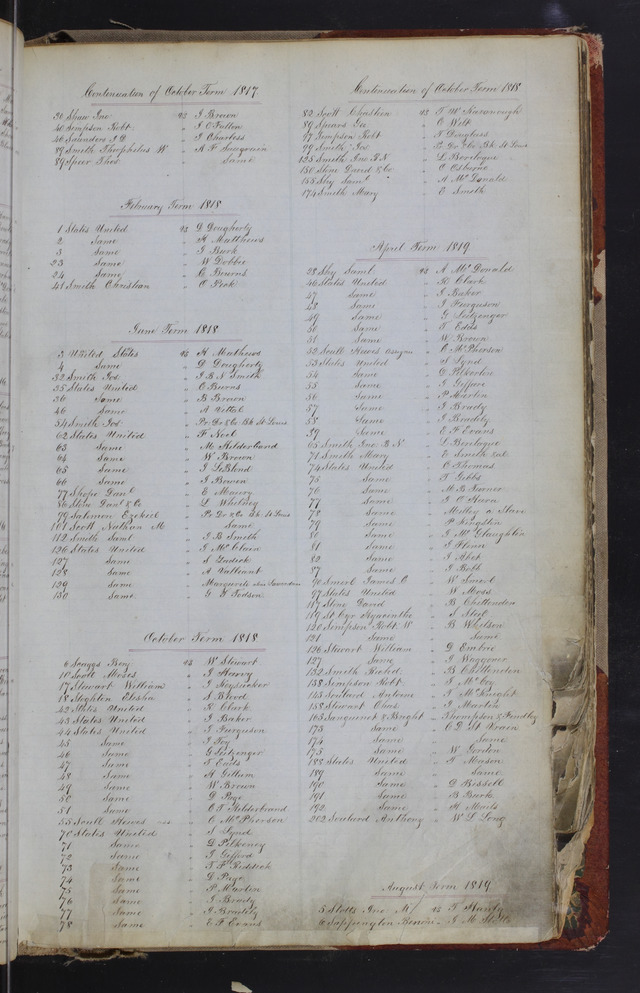 Continuation of October Term 1817
30 Shaw Jno vs J Brown
40 Simpson Robt " J O Fallon
46 Saunders J B " J Charless
89 Smith Theophelus W " A F
89 Speer Thos " Same
February Term 1818
1 States United vs D Dougherty
2 Same " H Matthews
3 Same " J Burk
23 Same " W Dobbie
24 Same " C Burns
41 Smith Christian " O Pink
June Term 1818
3 United States vs H Mathews
4 Same " D Dougherty
32 Smith Jos " J B N Smith
35 States United " C Burns
36 Same " B Brown
46 Same " A
54 Smith Jos " Pr Dr &Co Bk St Louis
62 States United " F Noel
63 Same " M Helderbrand
64 Same " W Brown
65 Same " J LeBlond
66 Same " J Bowen
77 Shope Danl " E Maury
86 Stow Danl & Co " L Whitney
99 Salomon Ezekiel " Pr Dr &Co Bk St Louis
101 Scott Nathan M " Same
112 Smith Saml " J B Smith
126 States United " J McClain
127 Same " S
128 Same " A Valleant
129 Same " Marguerite alias
130 Same " G H Dodson
October Term 1818
6 Scaggs Benj vs Wm Stewart
10 Scott Moses " J Harvey
17 Stewart William " J
18 Stoghton Elisha " A Bird
42 States United " R Clark
43 States United " J Baker
44 States United " J Furguson
45 Same " J Foy
46 Same " G Seitzenger
47 Same " T Eads
48 Same " H Gillum
49 Same " W Brown
50 Same " D Page
51 Same " C T Helderbrand
55 Scull Hewes " C McPherson
70 States United " S Lynd
71 Same " D Pelkeney
72 Same " J Gifford
73 Same " T F Reddick
74 Same " D Page
75 Same " P Martin
76 Same " J Brady
77 Same " J Bradley
78 Same " E F Evans
Continuation of October Term 1818
82 Scott Chasteen vs T W Kavanough
89 Spears Ga " O Wells
97 Simpson Robt " T Douglass
99 Smith Jos " Pr Dr &Co Bk St Louis
125 Smith Jno B N " L Benitegue
130 Stone David &Co " C Osburne
155 Shy Saml " A McDonald
174 Smith Mary " E Smith
April Term 1819
28 Shy Saml vs A McDonald
46 States United " R Clark
47 Same " J Baker
48 Same " J Furguson
49 Same " G Seitzenger
50 Same " T Edds
51 Same " W Brown
52 Scull Hewes Assignee " C McPherson
53 States United " S Lynd
54 Same " D Pelkerten
55 Same " J Gifford
56 Same " P Martin
57 Same " J Brady
58 Same " J Bradely
59 Same " E F Evans
65 Smith Jno B N " L Benitegue
71 Smith Mary " E Smith
74 States United " C Thomas
75 Same " T Gibbs
76 Same " M B Turner
77 Same " J O Hern
78 Same " Milley a Slave
79 Same " P Kingston
80 Same " J McGlaughlin
81 Same " J Flinn
82 Same " J
87 Same " J Bolt
90 Smart James C " W Smart
97 States United " W Moss
117 Stone David " B Chittenden
119 St Cyr Hyacintha " J Steel
120 Simpson Robt W " B Wheelson
121 Same " Same
126 Stewart William " D Embree
127 Same " J Waggoner
132 Smith Richd " B Chittenden
138 Simpson Robt " J McCoy
143 Soulard Antoine " J McKnight
158 Stewart Chas " J Martin
165 Sanguinet & Bright " Thompson &
173 Same " C D St Vrain
174 Same " Same
175 Same " W Gordon
188 States United " T Mason
189 Same " Same
190 Same " D Bissell
191 Same " B Burk
192 Same " H Mails
202 Soulard Anthony " W L Long
August Term 1819
5 Stotts Jno M vs T Hanly
6 Sappington " J M Stotts